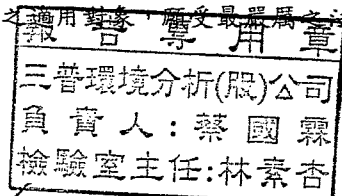 之適用對象，願受最嚴厲之法
報告專用章
三普環境分析(股)公司
負責人：蔡國霖
檢驗室主任:林素杏